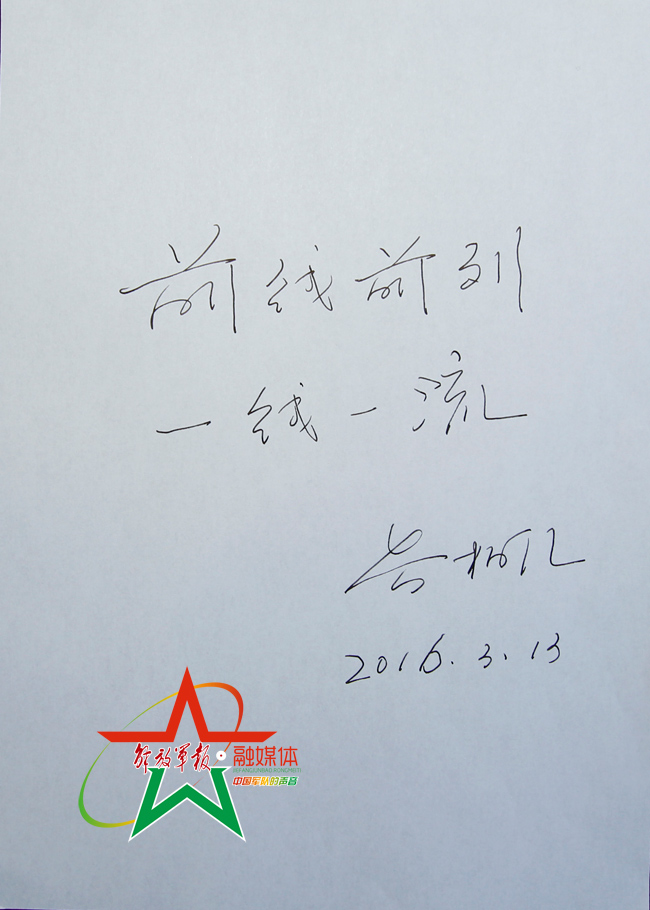 前线前列
一线一流
2016.3.13
解放軍報·融媒体
JIEFANGJUNBAO RONGMEITI
中国军队的声音